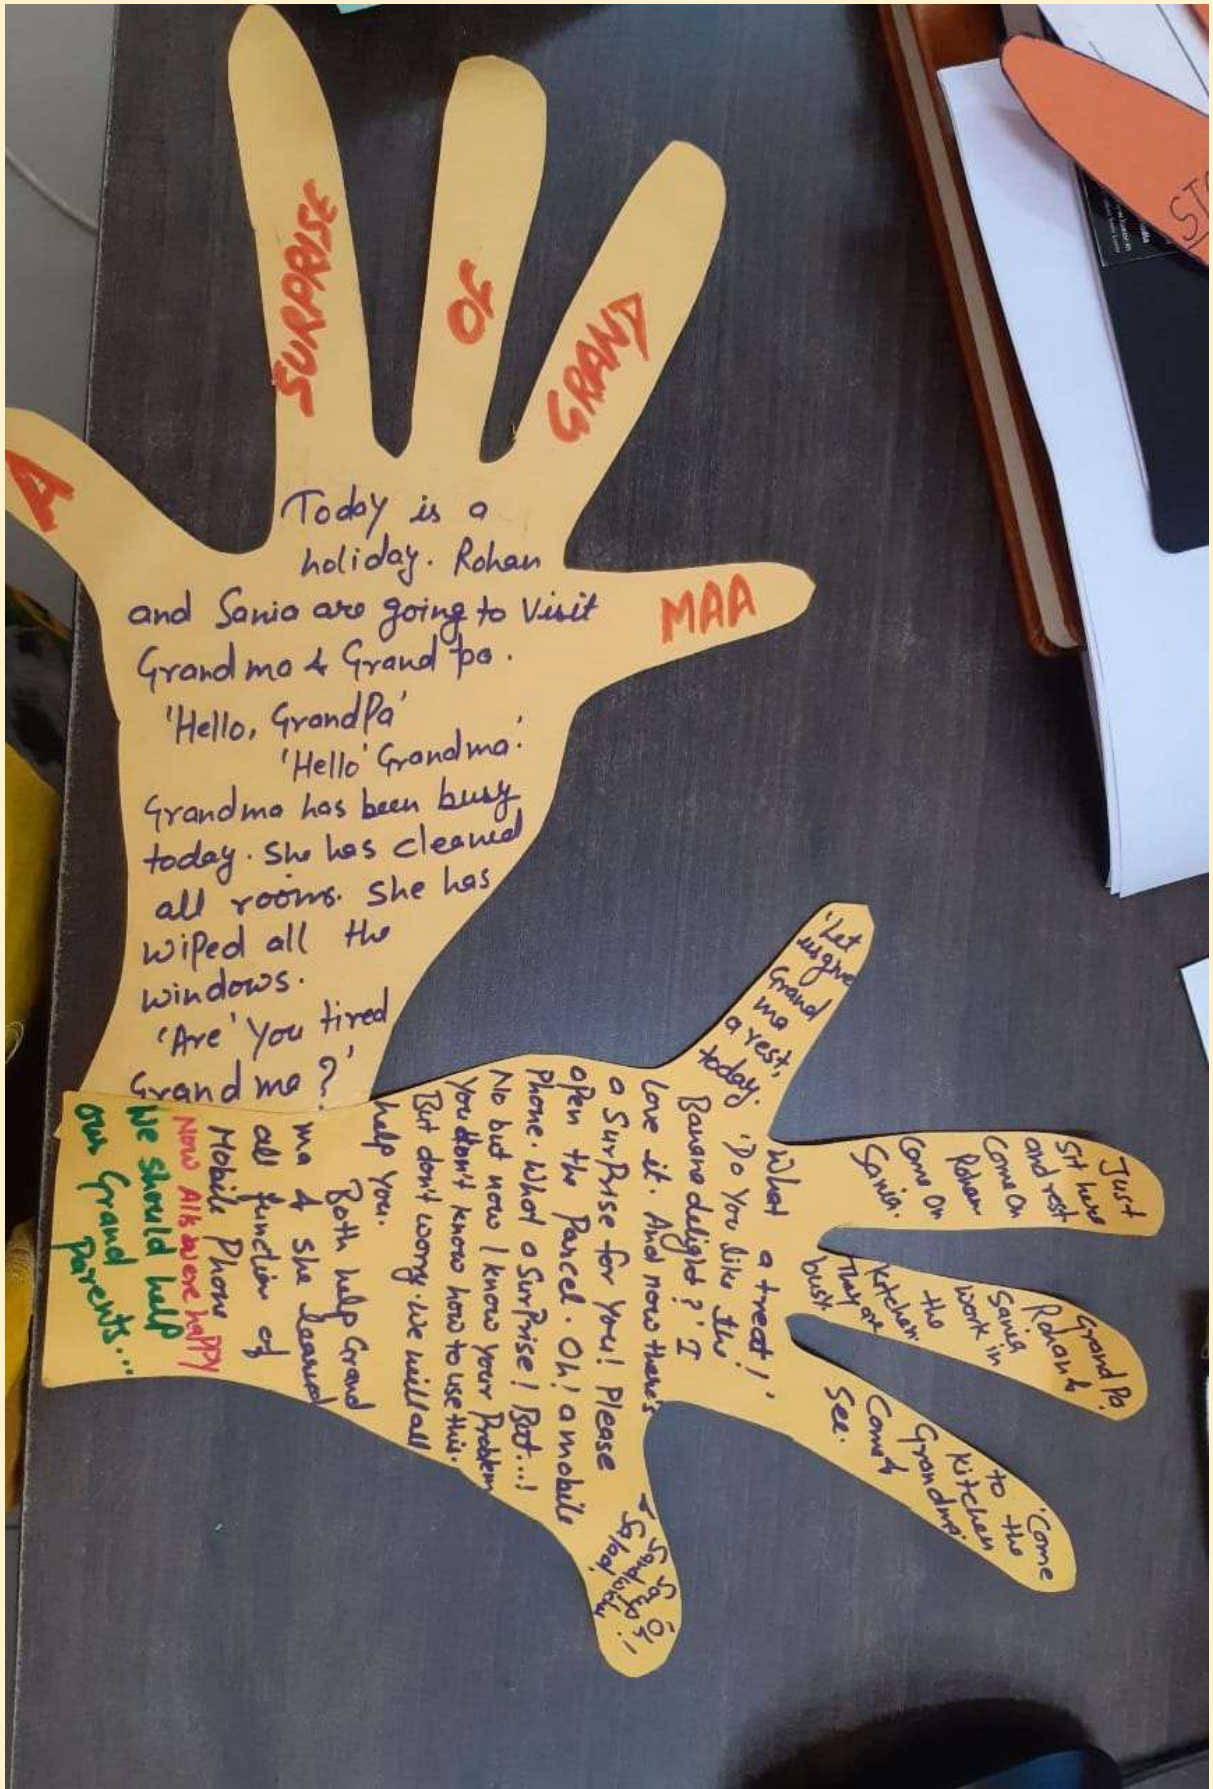 A
SURPRISE
OF
GRAND
MAA
Today is a
holiday. Rohan
and Sania are going to Visit
Grand ma & Grand pa.
'Hello, GrandPa'
'Hello' Grandma.'
Grandma has been busy
today. She has cleaned
all rooms. She has
wiped all the
windows.
'Are' You tired
Grand ma?'
'Let
us give
Grand
ma
a rest,
today.
Just
Sit here
and rest
Come On
Rohan
Come On
Sania.
Grand Pa.
Rohan &
Sania
work in
the
kitchen.
They are
busy.
'Come
to the
kitchen
Grandma.'
Come &
See.
Sandwich
Salad!
What a treat!'
'Do You like the
Banana delight?' I
love it. And now there's
a SurPrise for you! Please
open the Parcel. Oh! a mobile
Phone. What a SurPrise! But...!
No but now I know your Problem
You don't know how to use this.
But don't worry. We will all
help you.
Both help Grand
ma & She learned
all function of
Mobile Phone
Now All were happy
We should help
our Grand
Parents...
STO